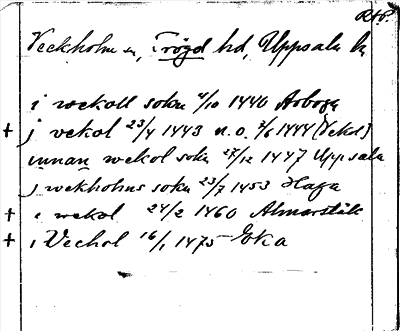 RAP.
Veckholm sn, Trögd hd, Uppsala l.
i wekoll sokn 4/10 1440 Arboga
+ j vekol 23/4 1443 n.o. 7/6 1444 (Vekol)
innan wekol sokn 27/12 1447 Uppsala
j wekholms sokn 23/7 1453 Haga
+ i wekol 24/2 1460 Almarstäk
+ i Vechol 16/1 1475 Eka